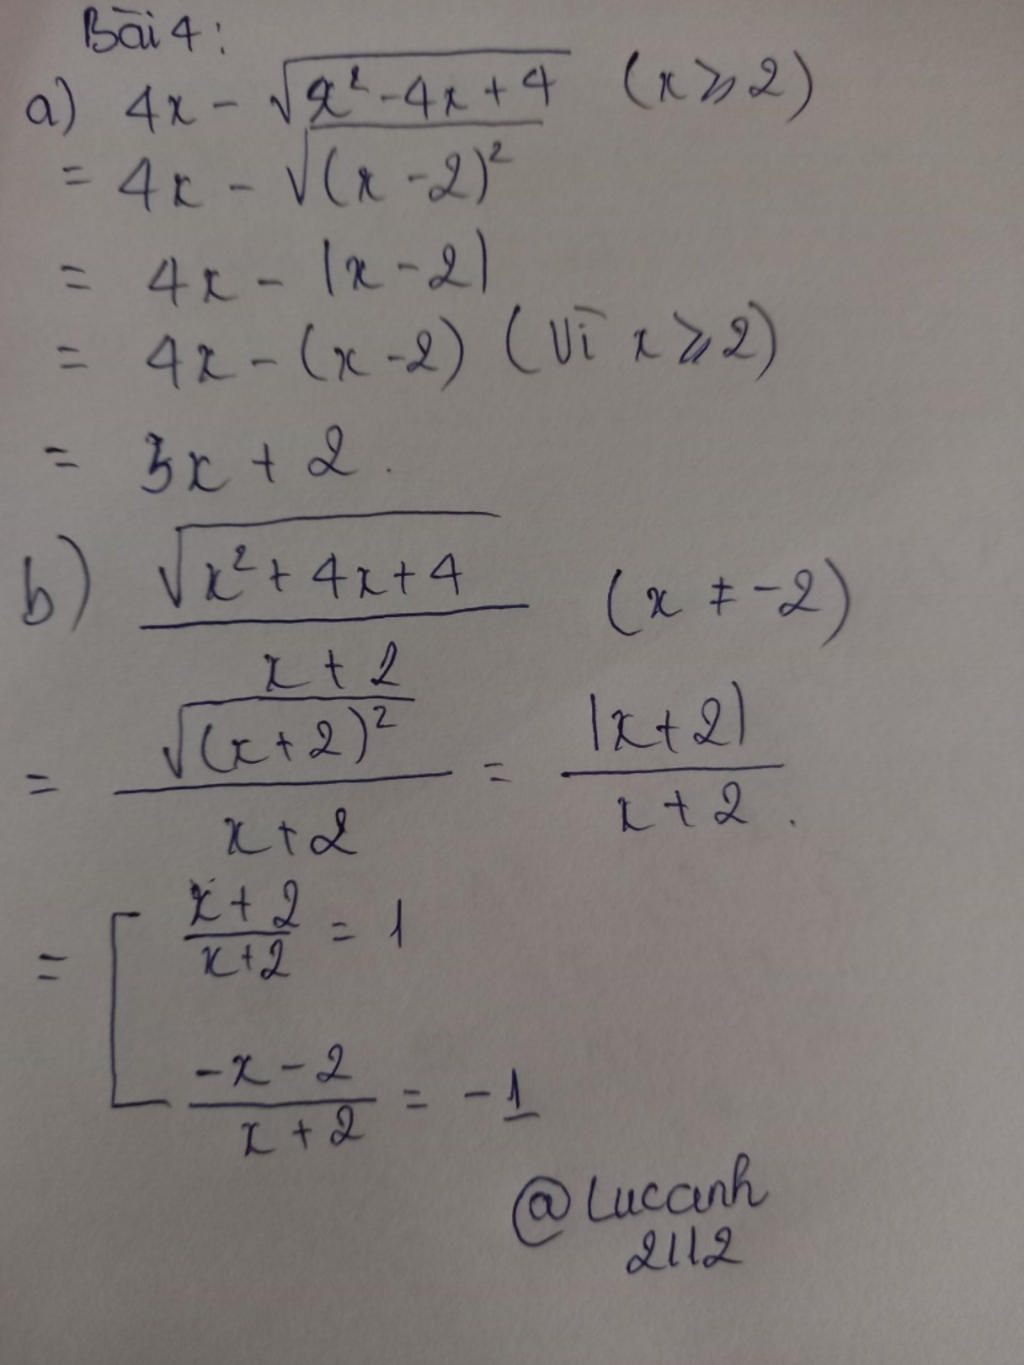 Bài 4:
a) 4x - √(x² - 4x + 4) (x ⩾ 2)
= 4x - √(x - 2)²
= 4x - |x - 2|
= 4x - (x - 2) (Vì x ⩾ 2)
= 3x + 2.
b) √(x² + 4x + 4) / (x + 2) (x ≠ -2)
= √(x + 2)² / (x + 2) = |x + 2| / (x + 2).
= [ (x + 2) / (x + 2) = 1
(-x - 2) / (x + 2) = -1
@Lucanh
2112